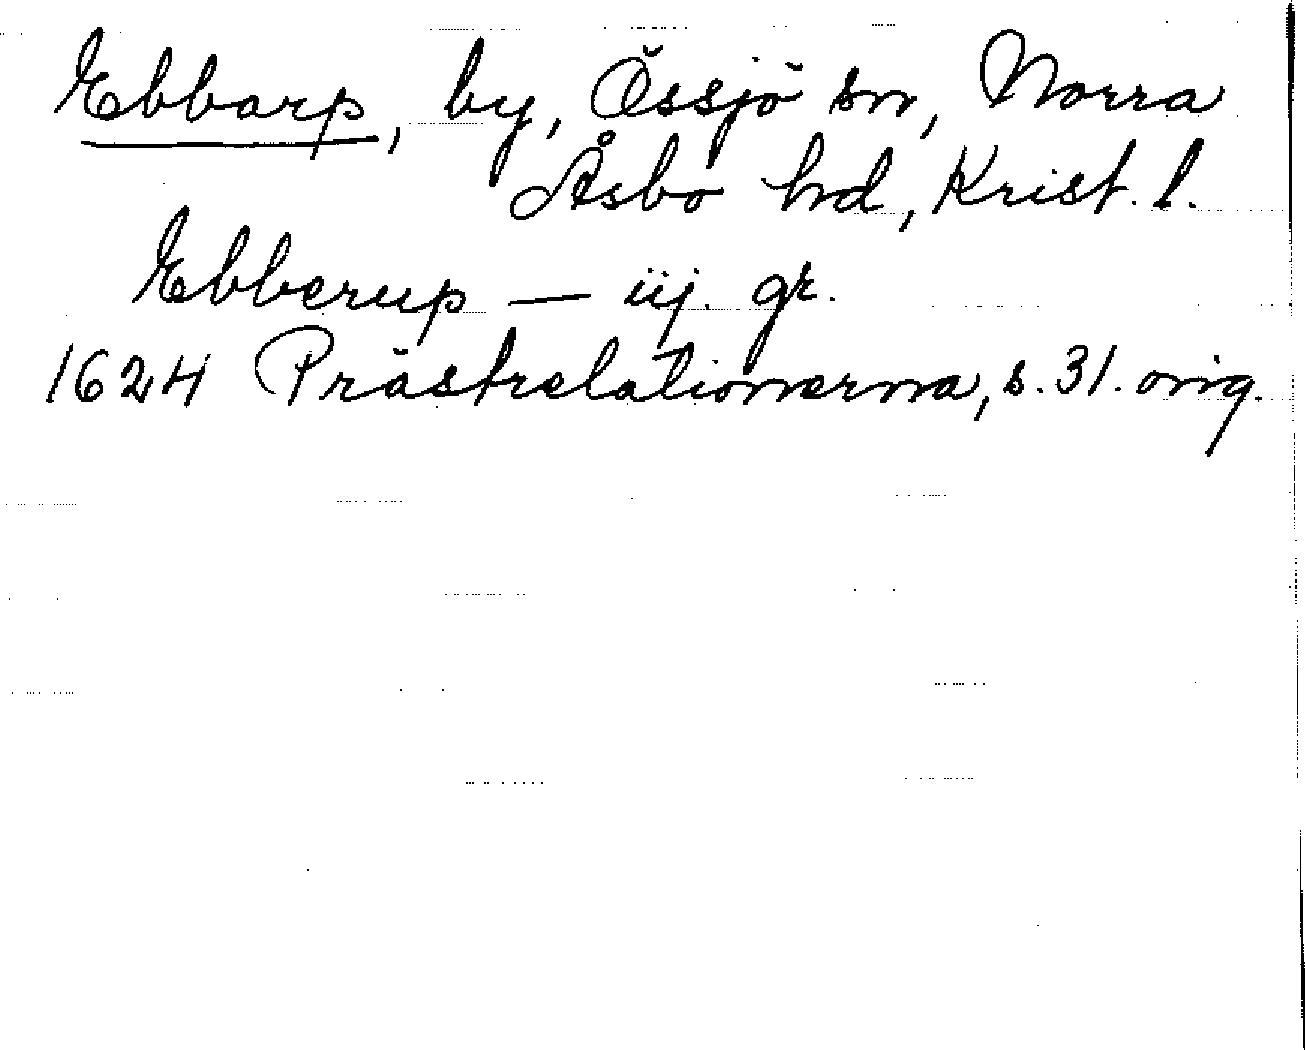 Ebbarp, by, Össjö sn, Norra
Åsbo hd, Krist. l.
Ebberup — iij. gr.
1624 Prästrelationerna, s. 31. orig.